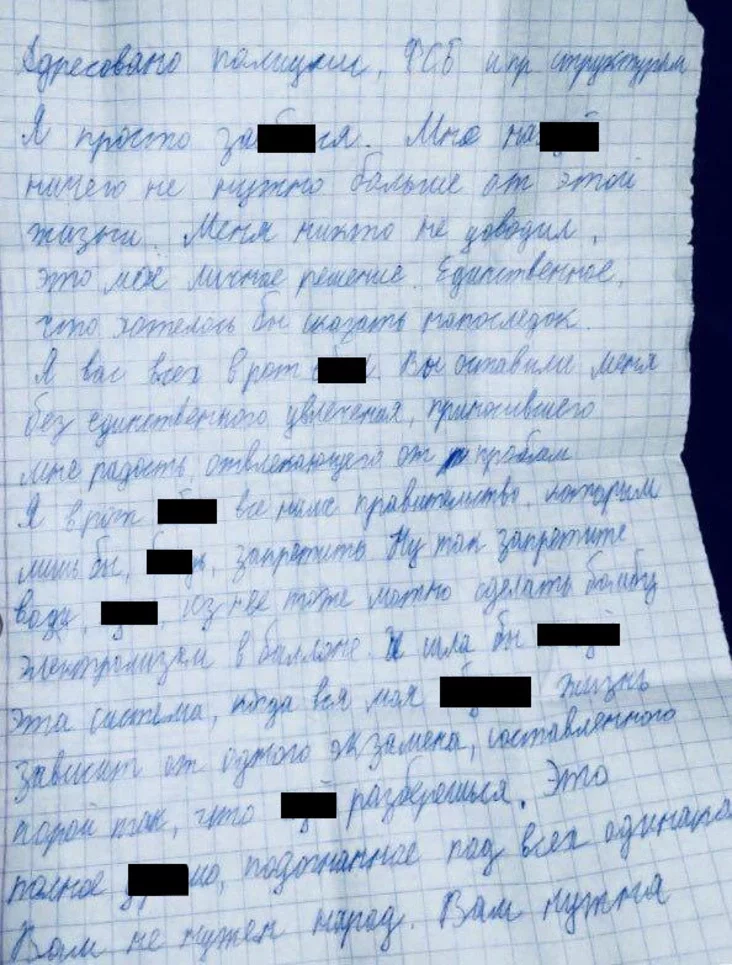 Адресовано полиции, ФСБ и пр структурам
Я просто за ся. Мне на
ничего не нужно больше от этой
жизни. Меня никто не доводил,
это моё личное решение. Единственное,
что хотелось бы сказать напоследок.
Я вас всех в рот . Вы оставили меня
без единственного увлечения, приносившего
мне радость, отвлекающего от проблем
Я в рот все наше правительство, которым
лишь бы, ь, запретить. Ну так запретите
воду, , из неё тоже можно сделать бомбу
электролизом в баллоне. И шла бы
эта система, когда вся моя жизнь
зависит от одного экзамена, составленного
порой так, что разберешься. Это
полное мо, подогнанное под всех одинако
Вам не нужен народ. Вам нужна